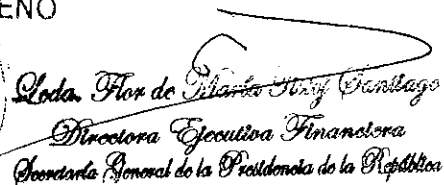 ENO
Licda. Flor de María Santiago
Directora Ejecutiva Financiera
Secretaría General de la Presidencia de la República